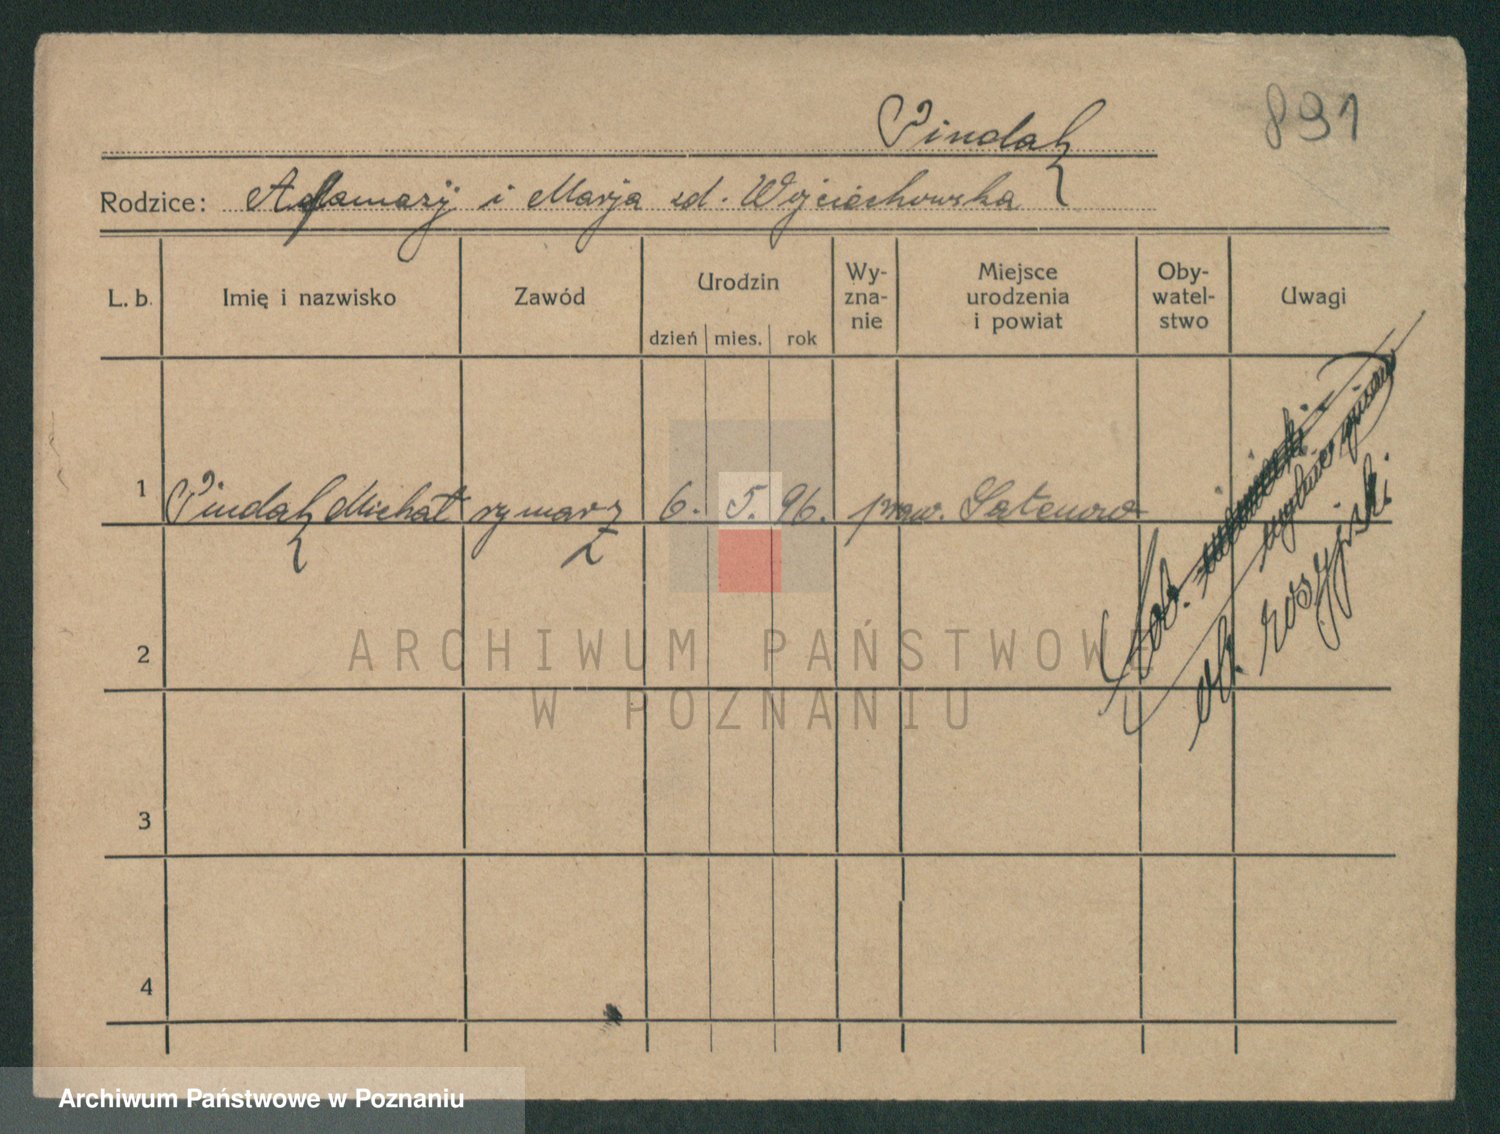 891
Pindak
Rodzice: Afamazy i Marja zd. Wojciechowska
L. b.
Imię i nazwisko
Zawód
Urodzin
dzień mies. rok
Wy-
zna-
nie
Miejsce
urodzenia
i powiat
Oby-
watel-
stwo
Uwagi
1 Pindak Michał rymarz 6. 5. 96. praw. Satanow
ob. rosyjski
2
3
4
ARCHIWUM PAŃSTWOWE
W POZNANIU
Archiwum Państwowe w Poznaniu